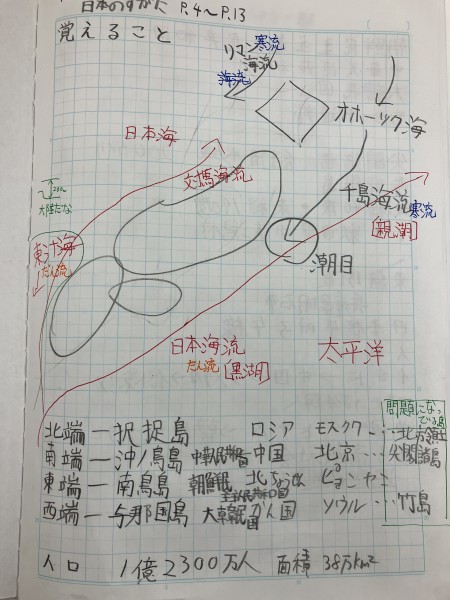 日本のすがた P.4〜P.13
覚えること
リマン海流 寒流
海流
オホーツク海
日本海
対馬海流
千島海流 寒流
[親潮]
大陸だな
東シナ海
だん流
潮目
日本海流
だん流 [黒潮]
太平洋
問題になっている島
北端ー択捉島 ロシア モスクワ…北方領土
南端ー沖ノ鳥島 中華人民共和国 中国 北京…尖閣諸島
東端ー南鳥島 朝鮮民主主義人民共和国 北ちょうせん ピョンヤン
西端ー与那国島 大韓民国 かん国 ソウル…竹島
人口 1億2300万人 面積 38万km²